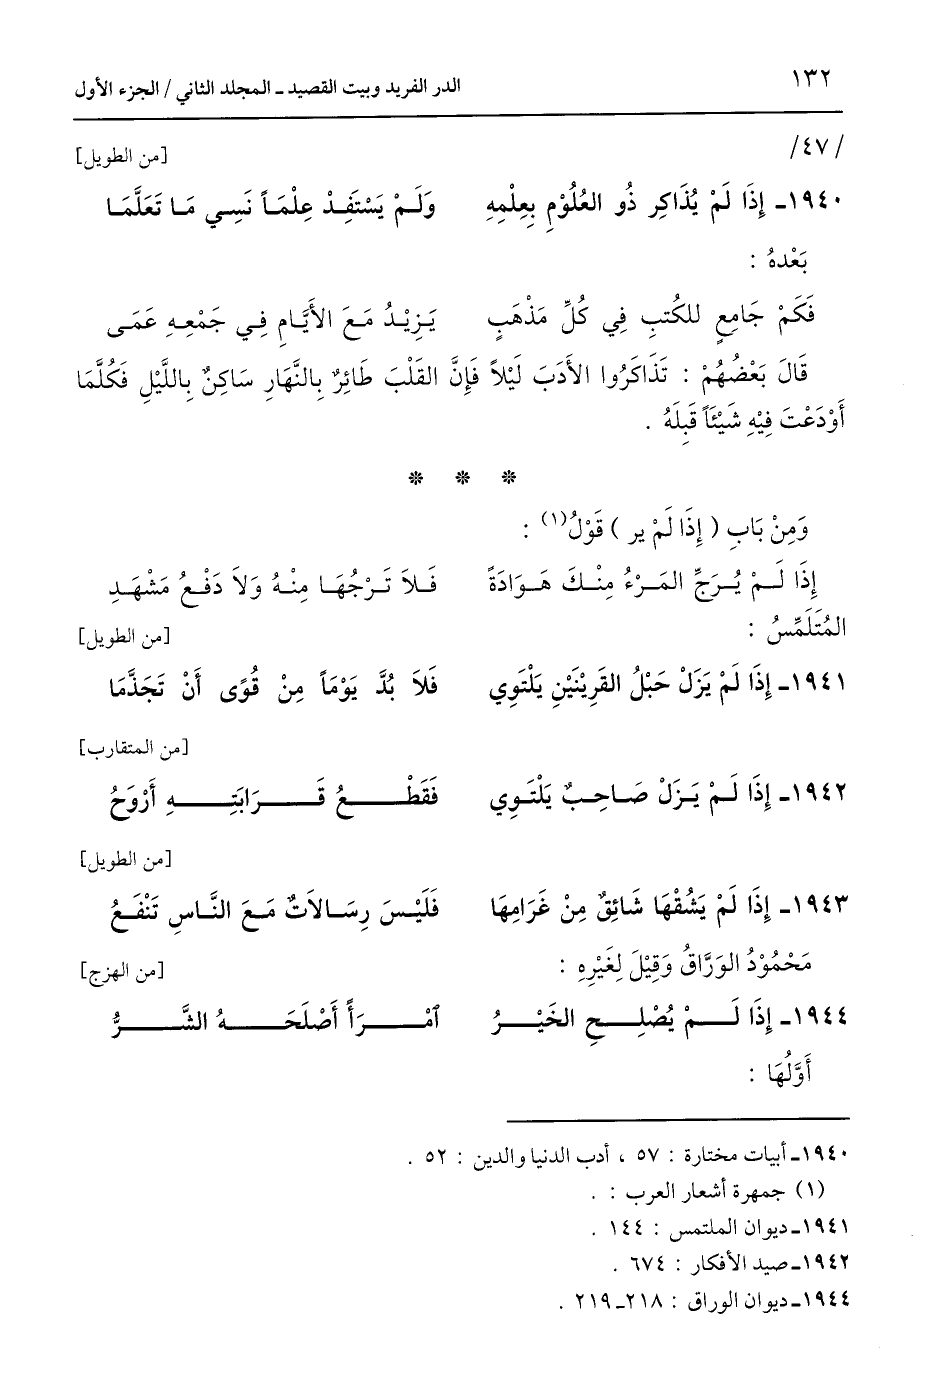 ١٣٢
الدر الفريد وبيت القصيد ـ المجلد الثاني / الجزء الأول
/٤٧/
[من الطويل]
١٩٤٠ـ إِذَا لَمْ يُذَاكِر ذُو العُلُوْمِ بِعِلْمِهِ وَلَـمْ يَسْتَفِـدْ عِلْمَـاً نَسِـي مَـا تَعَلَّمَـا
بَعْدهُ :
فَكَمْ جَامِعٍ للكُتبِ فِي كُلِّ مَذْهَبٍ يَـزِيْـدُ مَـعَ الأَيَّـامِ فِـي جَمْعِـهِ عَمَـى
قَالَ بَعْضُهُمْ : تَذَاكَرُوا الأَدَبَ لَيْلاً فَإِنَّ القَلْبَ طَائِرٌ بِالنَّهَارِ سَاكِنٌ بِاللَّيْلِ فَكُلَّمَا
أَوْدَعْتَ فِيْهِ شَيْئَاً قَبِلَهُ .
* * *
وَمِنْ بَابِ ( إِذَا لَمْ ير ) قَوْلُ(١) :
إِذَا لَـمْ يُـرَجِّ المَـرْءُ مِنْـكَ هَـوَادَةً فَـلاَ تَـرْجُهَـا مِنْـهُ وَلاَ دَفْـعُ مَشْهَـدِ
المُتَلَمِّسُ :
[من الطويل]
١٩٤١ـ إِذَا لَمْ يَزَلْ حَبْلُ القَرِيْنَيْنِ يَلْتَوِي فَلاَ بُدَّ يَوْمَاً مِنْ قُوًى أَنْ تَجَذَّمَا
[من المتقارب]
١٩٤٢ـ إِذَا لَـمْ يَـزَلْ صَـاحِـبٌ يَلْتَـوِي فَقَطْـــعُ قَـــرَابَتِـــهِ أَرْوَحُ
[من الطويل]
١٩٤٣ـ إِذَا لَمْ يَشُقْهَا شَائِقٌ مِنْ غَرَامِهَا فَلَيْـسَ رِسَـالاَتٌ مَـعَ النَّـاسِ تَنْفَـعُ
مَحْمُوْدُ الوَرَّاقُ وَقِيْلَ لِغَيْرِهِ :
[من الهزج]
١٩٤٤ـ إِذَا لَـــمْ يُصْلِـــحِ الخَيْـــرُ ٱمْـــرَأً أَصْلَحَـــهُ الشَّـــرُّ
أَوَّلُهَا :
١٩٤٠ـ أبيات مختارة : ٥٧ ، أدب الدنيا والدين : ٥٢ .
(١) جمهرة أشعار العرب : .
١٩٤١ـ ديوان الملتمس : ١٤٤ .
١٩٤٢ـ صيد الأفكار : ٦٧٤ .
١٩٤٤ـ ديوان الوراق : ٢١٨ـ٢١٩ .